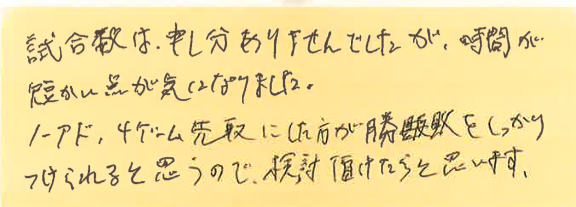 試合数は、申し分ありませんでしたが、時間が
短かい点が気になりました。
ノーアド、4ゲーム先取にした方が勝敗をしっかり
つけられると思うので、検討頂けたらと思います。